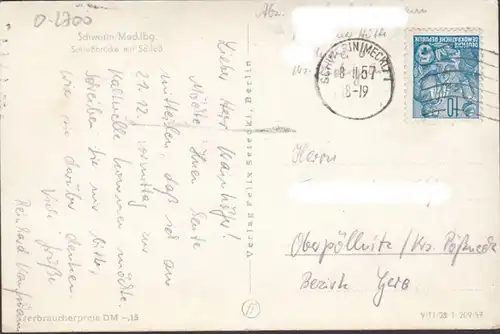 0-2700
Abz.
Schwerin/Mecklbg.
Schloßbrücke mit Schloß
Lieber Herr
Möchte Ihnen heute
mitteilen, daß ich am
21.12. vormittag zur
kommen möchte.
Schreiben Sie mir bitte,
wie sie darüber denken
Viele Grüße
Reinhard
Verbraucherpreis DM -,15
Verlag Felix Setecki, Berlin
SCHWERIN (MECKL) 1
8.11.57
18-19
DEUTSCHE
DEMOKRATISCHE REPUBLIK
10
Herrn
Oberpöllnitz / Krs. Pößneck
Bezirk Gera
V/11/28 1 209/57